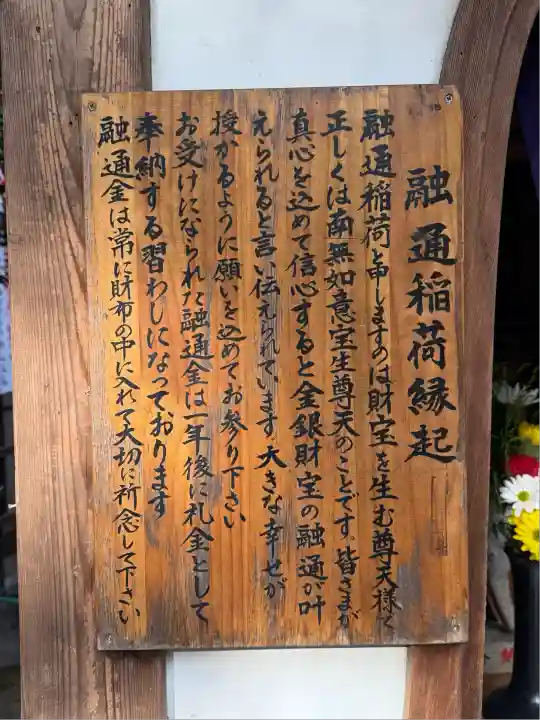 融通稲荷縁起
融通稲荷と申しますのは財宝を生む尊天様で
正しくは南無如意宝生尊天のことです。皆さまが
真心を込めて信心すると金銀財宝の融通が叶
えられると言い伝えられています。大きな幸せが
授かるように願いを込めてお参り下さい
お受けになられた融通金は一年後に礼金として
奉納する習わしになっております
融通金は常に財布の中に入れて大切に祈念して下さい